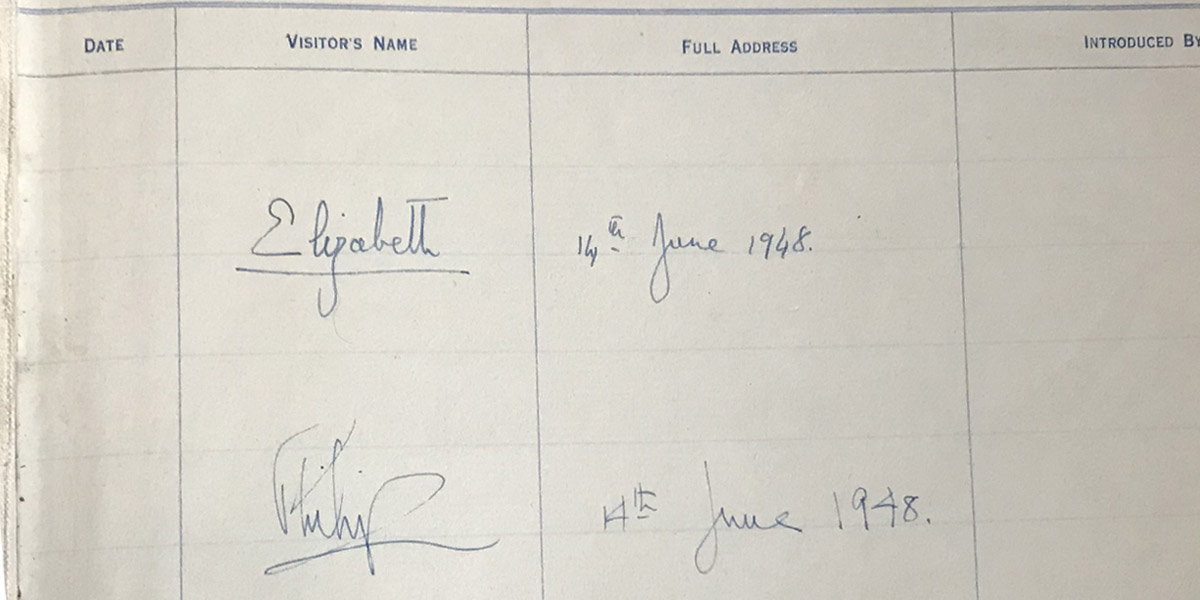 DATE VISITOR'S NAME FULL ADDRESS INTRODUCED BY
Elizabeth 14th June 1948.
Philip 14th June 1948.